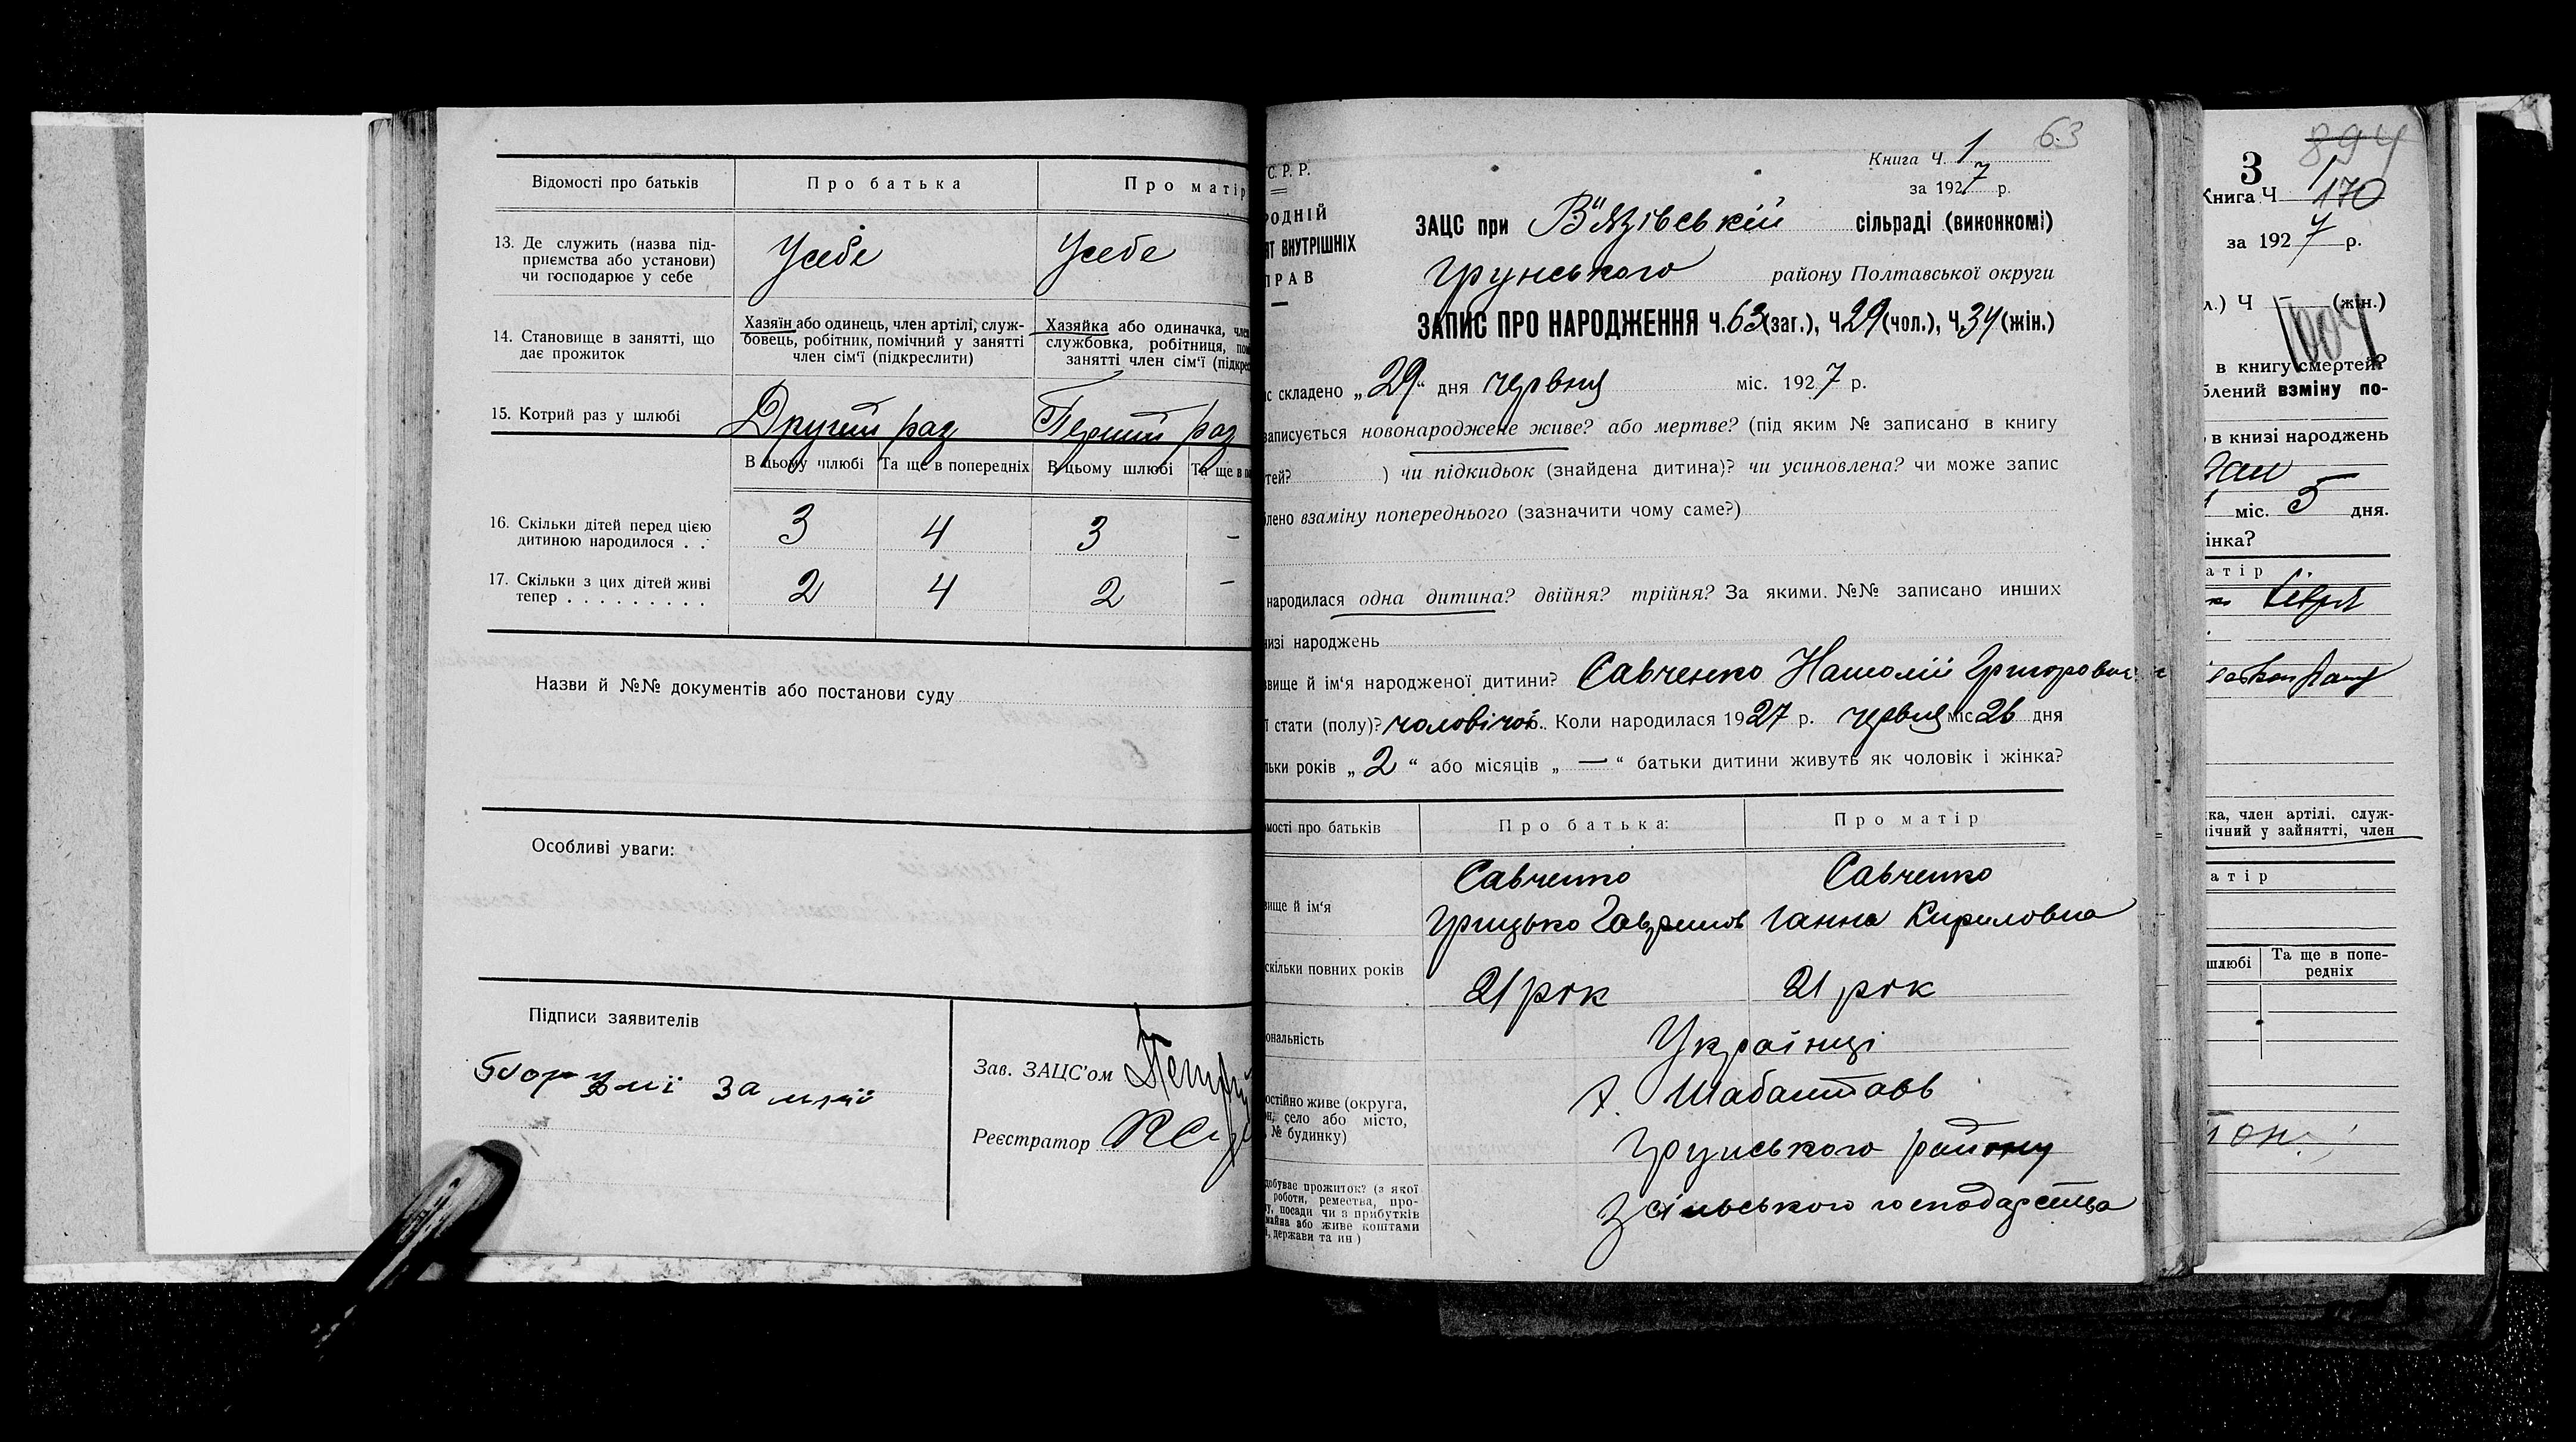 Відомості про батьків
Про батька
Про матір
13. Де служить (назва під-
приємства або установи)
чи господарює у себе
Усебе
Усебе
14. Становище в занятті, що
дає прожиток
Хазяїн або одинець, член артілі, служ-
бовець, робітник, помічний у занятті
член сім'ї (підкреслити)
Хазяйка або одиначка, член
службовка, робітниця, пом
занятті член сім'ї (підкре
15. Котрий раз у шлюбі
Другий раз
Перший раз
В цьому шлюбі
Та ще в попередніх
В цьому шлюбі
Та ще в по
16. Скільки дітей перед цією
дитиною народилося . .
3 4 3 -
17. Скільки з цих дітей живі
тепер . . . . . . . . .
2 4 2 -
Назви й №№ документів або постанови суду
Особливі уваги:
Підписи заявителів
Зав. ЗАЦС'ом
Реєстратор
63
С. Р. Р.
РОДНІЙ
ЯТ ВНУТРІШНІХ
ПРАВ
Книга Ч. 1
за 1927 р.
ЗАЦС при В"язівській сільраді (виконкомі)
Грунського району Полтавської округи
ЗАПИС ПРО НАРОДЖЕННЯ Ч. 63 (заг.), Ч. 29 (чол.), Ч. 34 (жін.)
ис складено „29" дня червня міс. 1927 р.
записується новонароджене живе? або мертве? (під яким № записано в книгу
тей? ) чи підкидьок (знайдена дитина)? чи усиновлена? чи може запис
блено взаміну попереднього (зазначити чому саме?)
народилася одна дитина? двійня? трійня? За якими №№ записано инших
низі народжень
звище й ім'я народженої дитини? Савченко
ї стати (полу)? чоловічої. Коли народилася 1927 р. червня міс 26 дня
льки років „2" або місяців „—" батьки дитини живуть як чоловік і жінка?
мості про батьків
Про батька:
Про матір
вище й ім'я
Савченко
Грицько Гаврилов
Савченко
Ганна Кириловна
скільки повних років
21 рік
21 рік
ональність
Українці
остійно живе (округа,
он, село або місто,
№ будинку)
х.
Грунського району
добуває прожиток? (з якої
роботи, ремества, про-
у, посади чи з прибутків
майна або живе коштами
і, держави та ин)
З сільського господарства
894
3
Книга Ч 1
170
за 1927 р.
л.) Ч — (жін.)
в книгу смертей?
блений взміну по-
в книзі народжень
міс. 5 дня.
інка?
атір
ка, член артілі, служ-
мічний у зайнятті, член
атір
шлюбі
Та ще в попе-
редніх